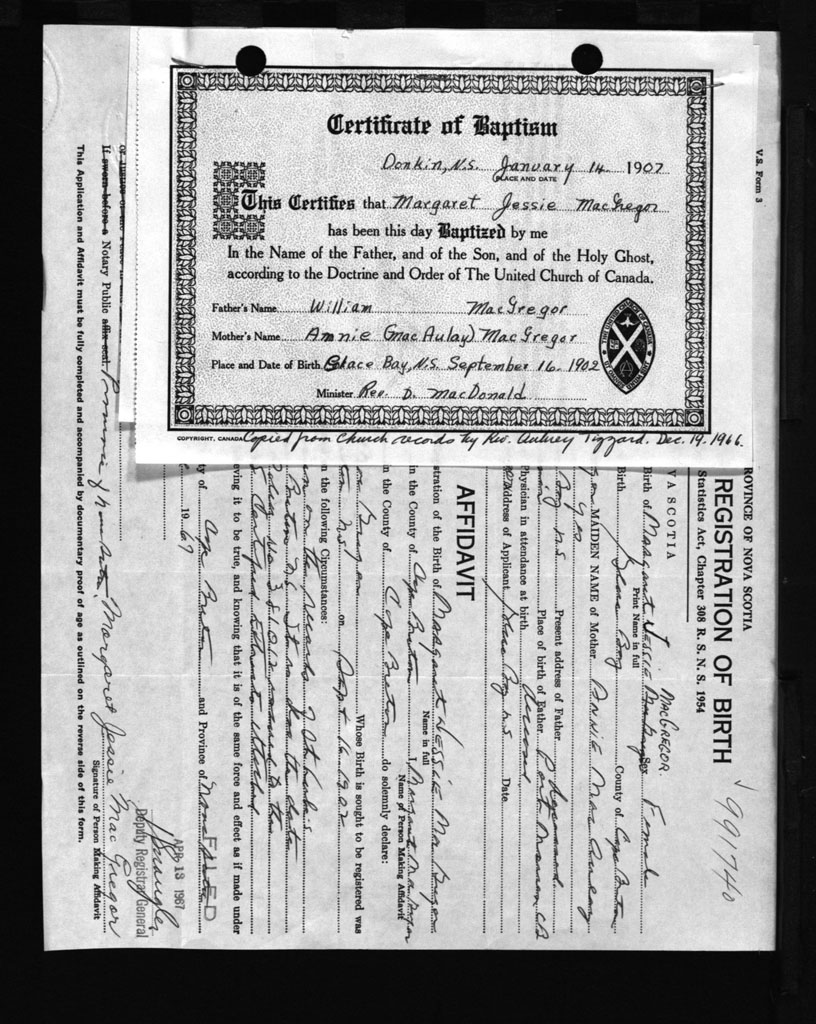 Certificate of Baptism
Donkin, N.S. January 14 1907
PLACE AND DATE
This Certifies that Margaret Jessie MacGregor
has been this day Baptized by me
In the Name of the Father, and of the Son, and of the Holy Ghost,
according to the Doctrine and Order of The United Church of Canada.
Father's Name William MacGregor
Mother's Name Annie (MacAulay) MacGregor
Place and Date of Birth Glace Bay, N.S. September 16, 1902
Minister Rev. D. MacDonald
COPYRIGHT, CANADA Copied from Church records by Rev. Aubrey Tizzard. Dec. 19. 1966.
V.S. Form 3
991740
ROVINCE OF NOVA SCOTIA
REGISTRATION OF BIRTH
Statistics Act, Chapter 308 R. S. N. S. 1954
VA SCOTIA
MacGREGOR
Birth of Margaret JESSIE Sex Female
Print Name in full
Birth Glace Bay County of Cape Breton
MAIDEN NAME of Mother ANNIE MacAulay
yes
Bay N.S. Present address of Father Deceased
Place of birth of Father Port Morien CB
Physician in attendance at birth
Address of Applicant Glace Bay N.S. Date
AFFIDAVIT
stration of the Birth of Margaret JESSIE MacGregor
Name in full
in the County of Cape Breton I, Margaret MacGregor
Name of Person Making Affidavit
n the County of Cape Breton do solemnly declare:
Whose Birth is sought to be registered was
N.S. on Sept 16 1902
n the following Circumstances:
on the records of
eving it to be true, and knowing that it is of the same force and effect as if made under
ty of Cape Breton and Province of Nova Scotia
1967
FILED
APR 13 1967
Deputy Registrar General
If sworn before a Notary Public affix seal. Province of Nova Scotia. Margaret Jessie MacGregor
Signature of Person Making Affidavit
This Application and Affidavit must be fully completed and accompanied by documentary proof of age as outlined on the reverse side of this form.